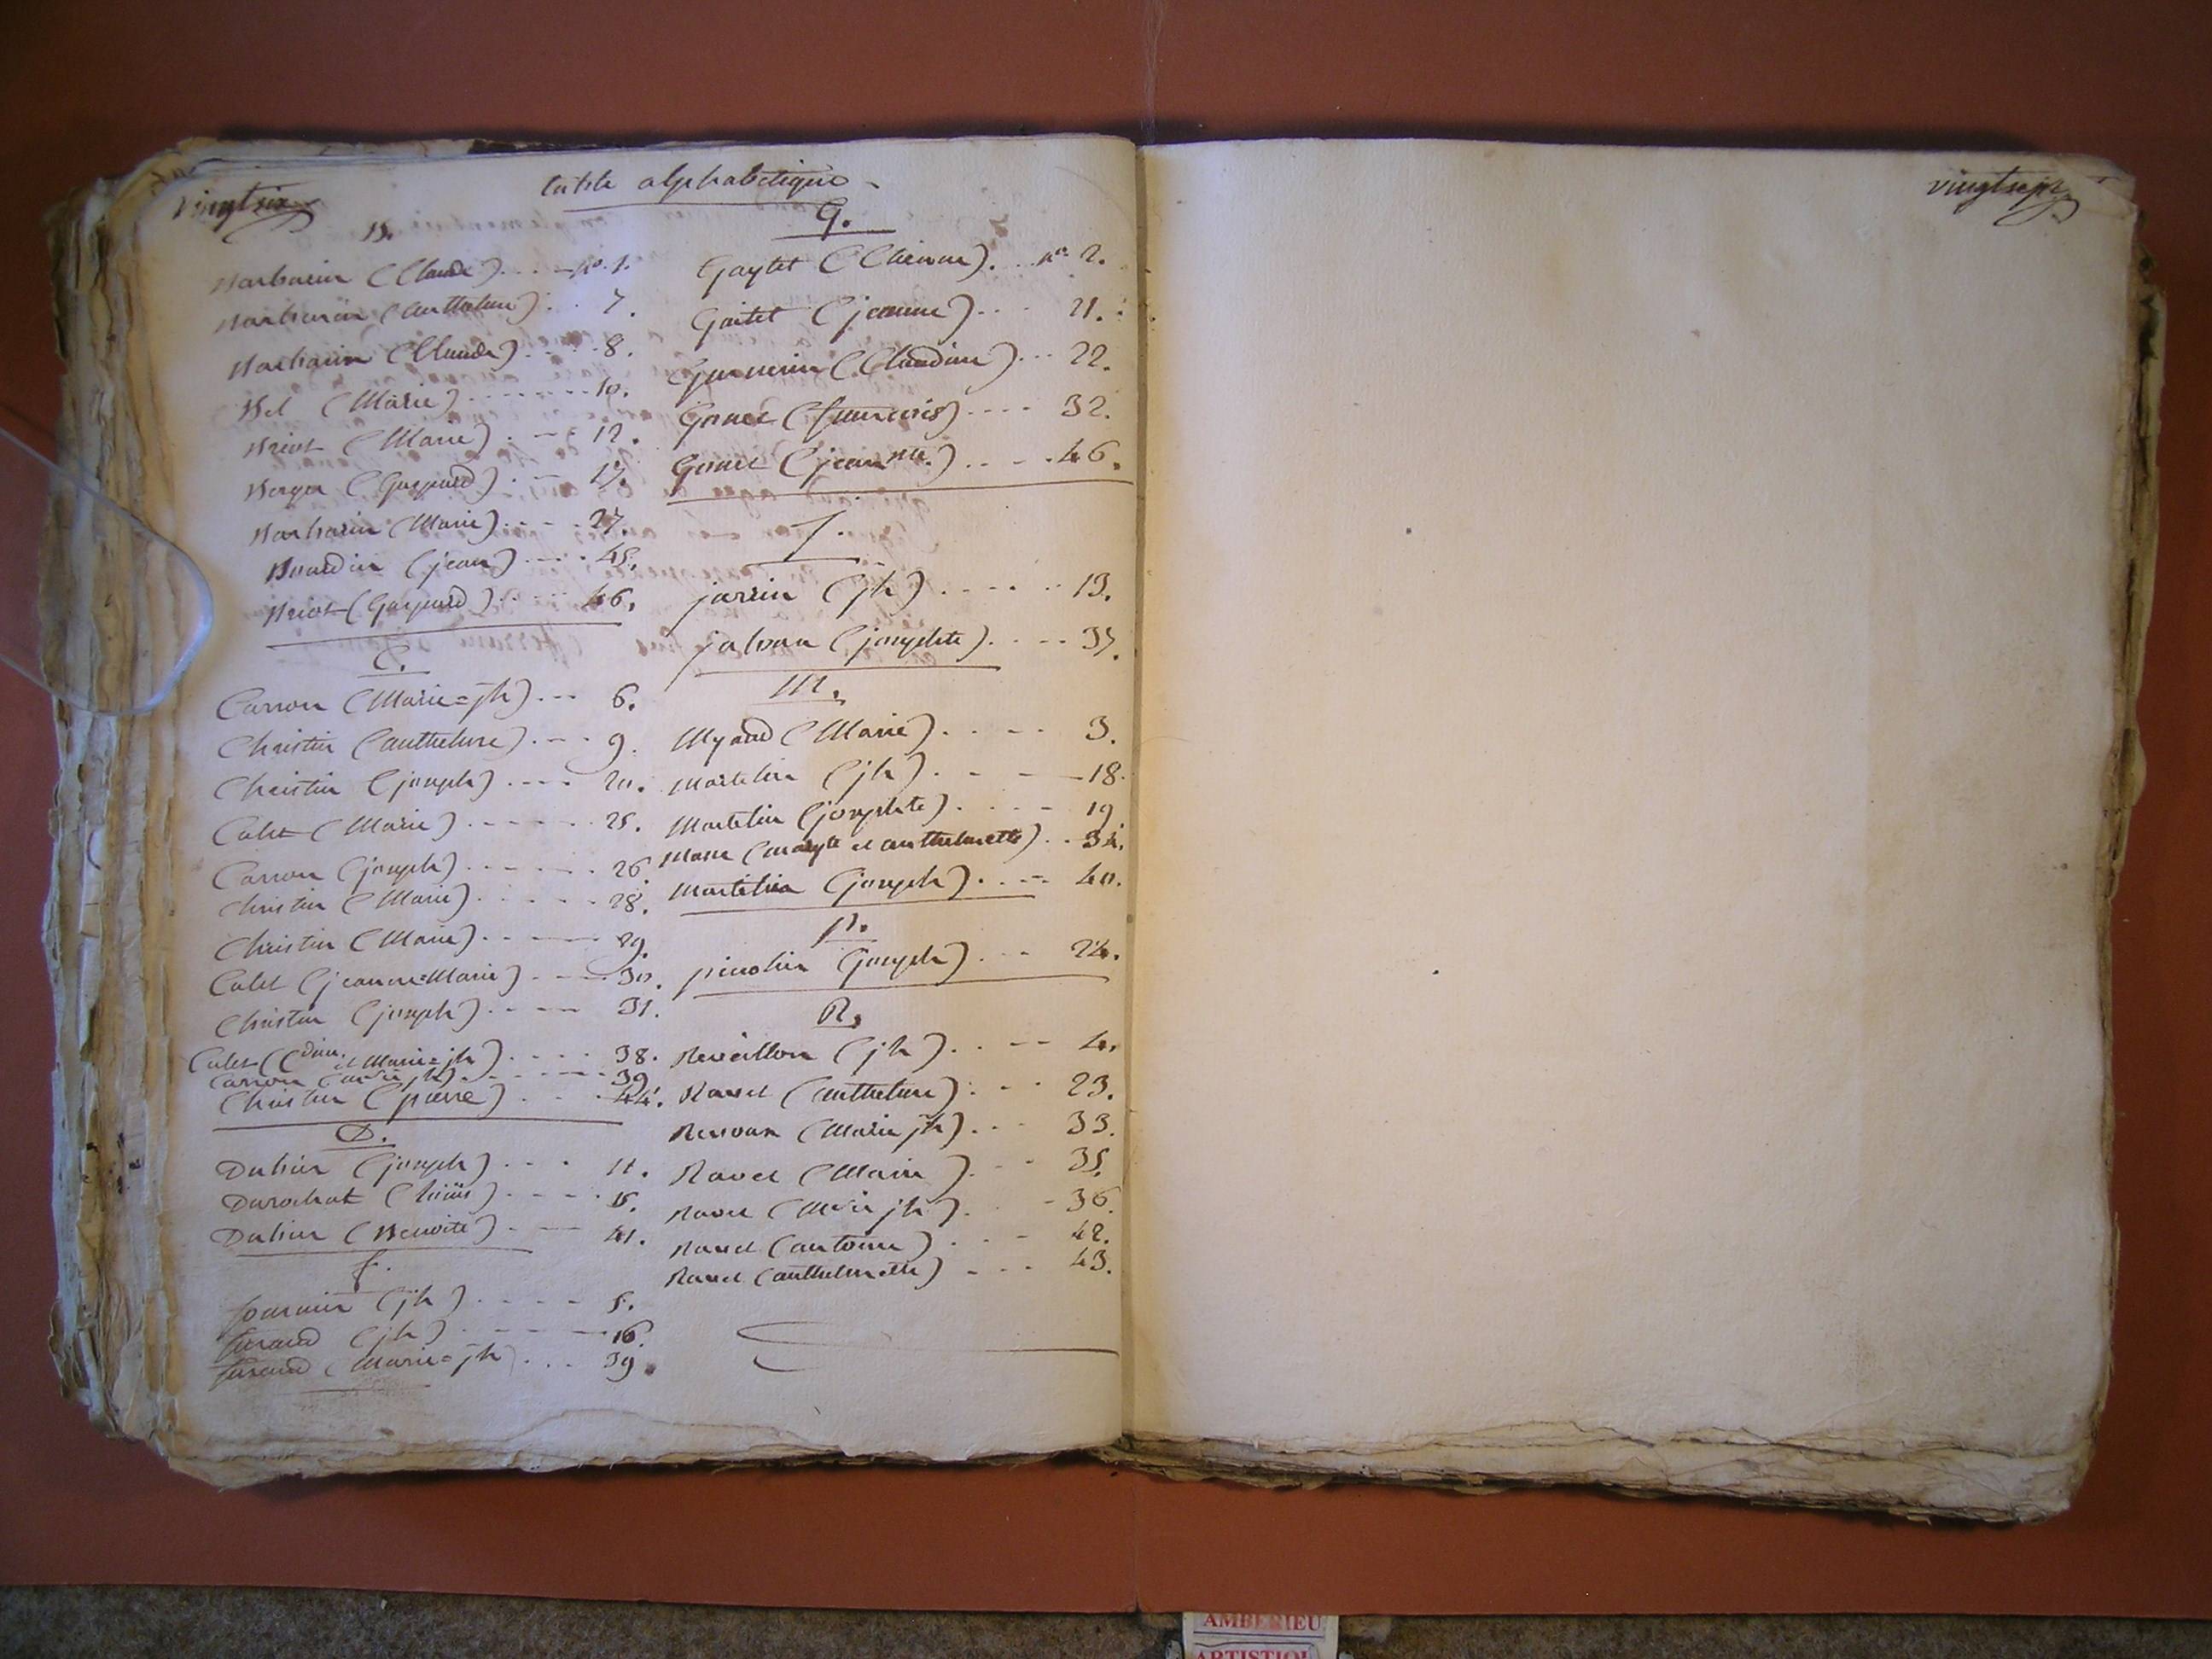 vingtsix
table alphabetique
B.
Barbarin (Claude) . . . n.° 1.
Barbarin (anthelme) . . 7.
Barbarin (Claude) . . . . 8.
Bel (Marie) . . . . . . . . 10.
Briot (Marie) . . . . 12.
Berger (Gaspard) . . . 17.
Barbarin (Marie) . . . . 27.
Bourdin (jean) . . . . 45.
Briot (Gaspard) . . . . 46.
C.
Carron (Marie=jh) . . . 6.
Christin (anthelme) . . . . 9.
Christin (joseph) . . . . 20.
Calet (Marie) . . . . . . 25.
Carron (joseph) . . . . . . 26.
Christin (Marie) . . . . . 28.
Christin (Marie) . . . . 29.
Calet (jeanne=Marie) . . . . 30.
Christin (joseph) . . . . . 31.
Calet (Cdine. et Marie=jh) . . . . 38.
Carron (jh) . . . . . . . 39.
Christin (pierre) . . . . 44.
D.
Dubin (joseph) . . . . 11.
Durochat . . . . 15.
Dubin (Benoite) . . . . 41.
f.
fournier (jh) . . . . . 5.
feraud (jh) . . . . . 16.
feraud (Marie=jh) . . . 39.
G.
Gaytet (Etienne). . . n.° 2.
Gaitet (jeanne) . . . . 21.
(Claudine) . . . 22.
Gonet (francois) . . . . 32.
Gonet (jean Mie.) . . . . 46.
J.
jarrin (jh) . . . . . . 13.
(josephte) . . . . 37.
M.
Myard (Marie) . . . . . 3.
Martelin (jh) . . . . 18.
Martelin (josephte) . . . . . 19.
(et anthelmette) . . 34.
Martelin (joseph) . . . . 40.
p.
(joseph) . . . 24.
R.
Reveillon (jh) . . . . 4.
Ravet (anthelme) . . . 23.
(Marie jh) . . . 33.
Ravet (Marie) . . . 35.
Ravet (Marie jh) . . . 36.
Ravet (antoine) . . . . 42.
Ravet (anthelmette) . . . . 43.
vingtsept
AMBERIEU